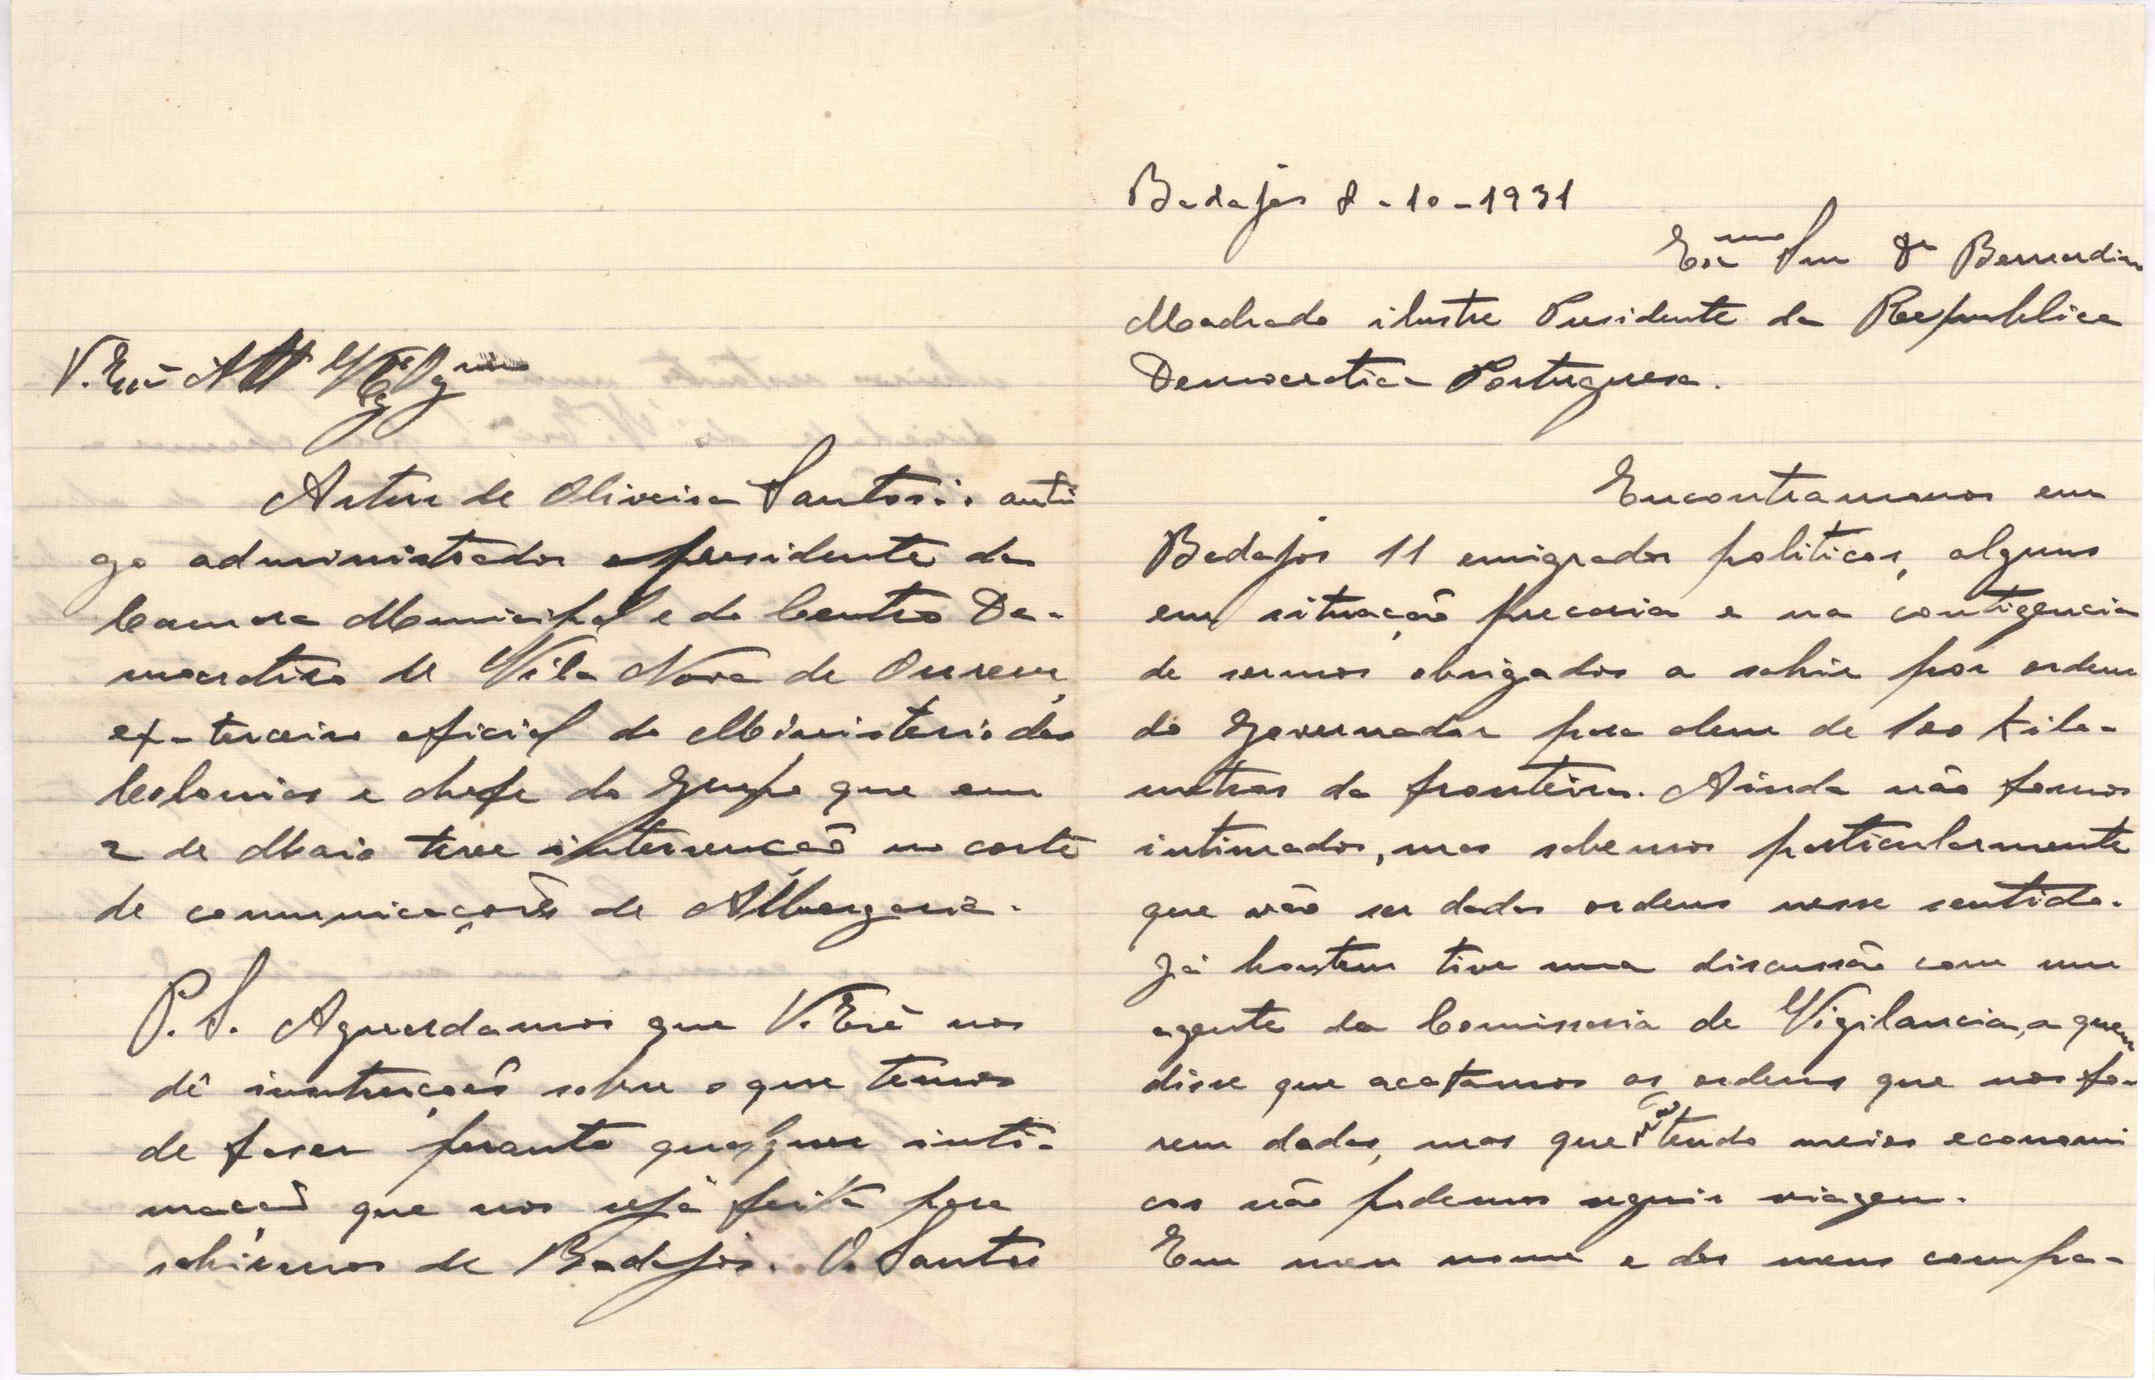 Badajos 8-10-1931
Exmo Snr Dr Bernardino
Machado ilustre Presidente da Republica
Democratica Portuguesa.
Encontramonos em
Badajos 11 emigrados politicos, alguns
em situação precaria e na contigencia
de sermos obrigados a sahir por ordem
do Governador para alem de 100 kilo-
metros da fronteira. Ainda não fomos
intimados, mas sabemos particularmente
que vão ser dadas ordens nesse sentido.
Já hontem tive uma discussão com um
agente da Comissaria de Vigilancia, a quem
disse que acatamos as ordens que nos fo-
rem dadas, mas que não tendo meios economi
cos não podemos seguir viagem.
Em meu nome e dos meus compa-
V. Exia Att
Artur de Oliveira Santos: anti
go administrador e presidente da
Camara Municipal e do Centro De-
mocratico de Vila Nova de Ourem,
ex-terceiro oficial do Ministerio das
Colonias e chefe do grupo que em
2 de Maio teve intervenção no corte
de comunicações de Albergaria.
P.S. Aguardamos que V. Exiª nos
dê instruções sobre o que temos
de faser perante qualquer inti-
mação que nos seja feita para
sahirmos de Badajos. O. Santos